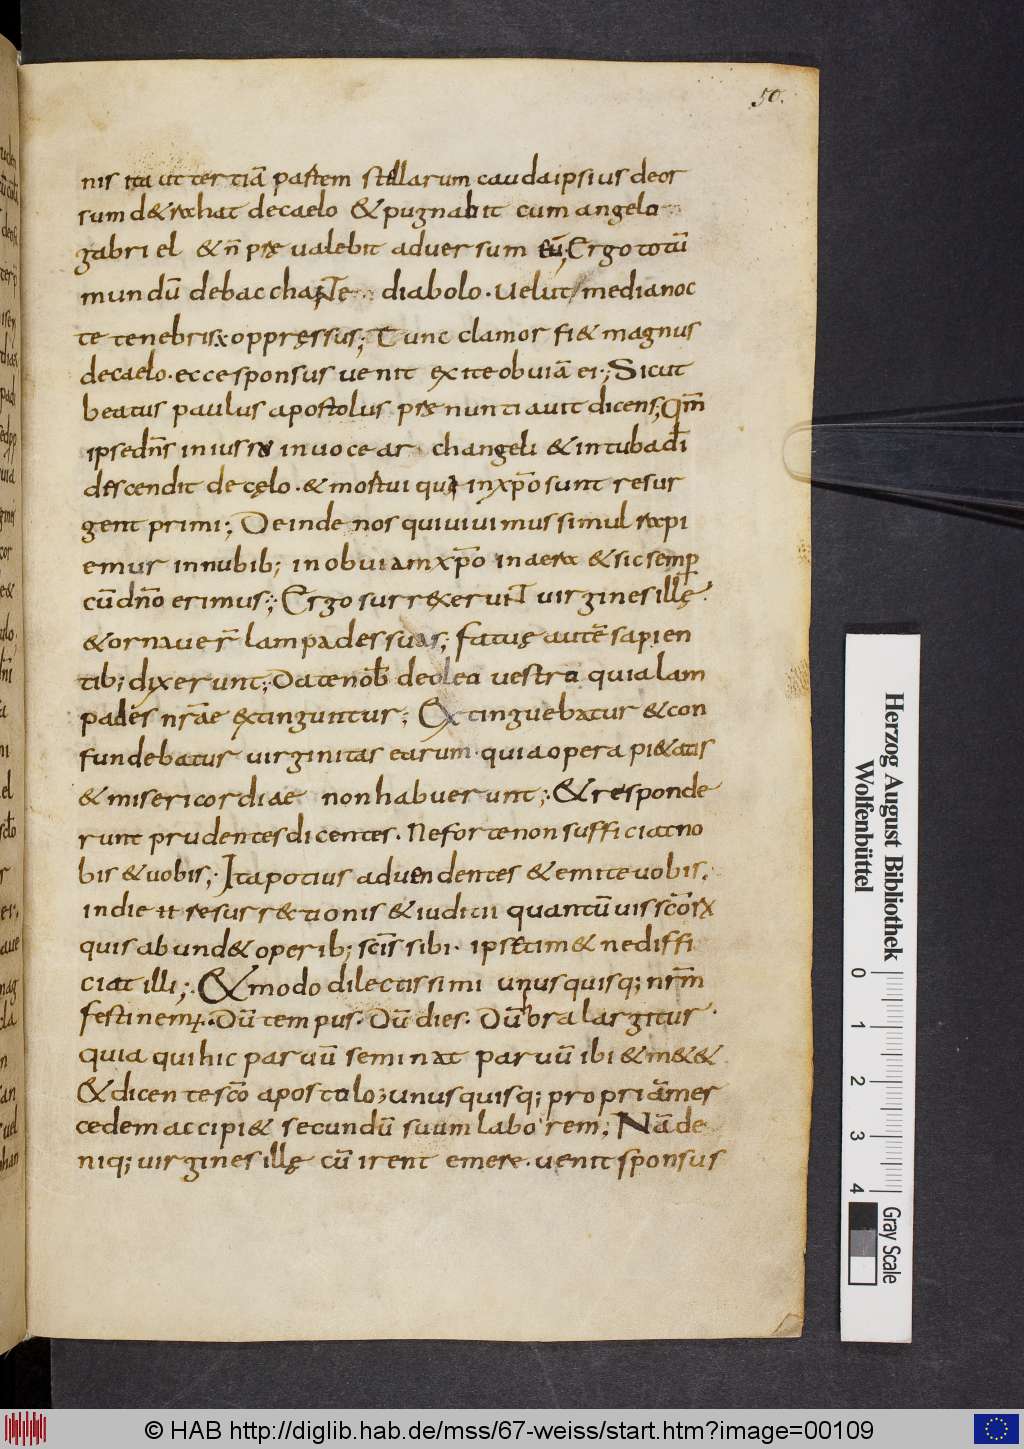 50.
nis ita ut tertiā partem stellarum cauda ipsius deor
sum d&rahat de caelo & pugnabit cum angelo
gabriel & n̄ pręvalebit adversum eū; Ergo totū
mundū debacchante diabolo. Velut medianoc
te tenebris oppręssus; Tunc clamor fi& magnus
de caelo. ecce sponsus venit exite obviā ei; Sicut
beatus paulus apostolus pręnuntiavit dicens; Qm̄
ipse dn̄s in iusso in voce archangeli & in tuba dī
descendit de cęlo. & mortui qui in xp̄o sunt resur
gent primi; Deinde nos qui vivimus simul rapi
emur in nubib; in obviam xp̄o in aera & sic semp̄
cū dn̄o erimus; Ergo surrexerunt virgines illę
& ornaver̄ lampades suas; fatuę autē sapien
tib; dixerunt; Date nob̄ de oleo vestro quia lam
pades nr̄ae extinguntur; Extinguebatur & con
fundebatur virginitas earum. quia opera pi&atis
& misericordiae non habuerunt; & responde
runt prudentes dicentes. Ne forte non sufficiat no
bis & vobis; Ita potius ad vendentes & emite vobis.
in die resurrectionis & iudicii quantūvis sc̄orx
quis abund& operib; sc̄is sibi. ips& tim& ne diffi
ciat illi; & modo dilectissimi unusquisq; nr̄m
festinem;. Dū tempus. Dū dies. Dū ora largitur.
quia qui hic parvū seminat parvū ibi & m&&
& dicente sc̄o apostolo; unusquisq; propriā mer
cedem accipi& secundū suum laborem; Nā de
niq; virgines illę cū irent emere. venit sponsus
Herzog August Bibliothek
Wolfenbüttel
0 1 2 3 4
Gray Scale
© HAB http://diglib.hab.de/mss/67-weiss/start.htm?image=00109